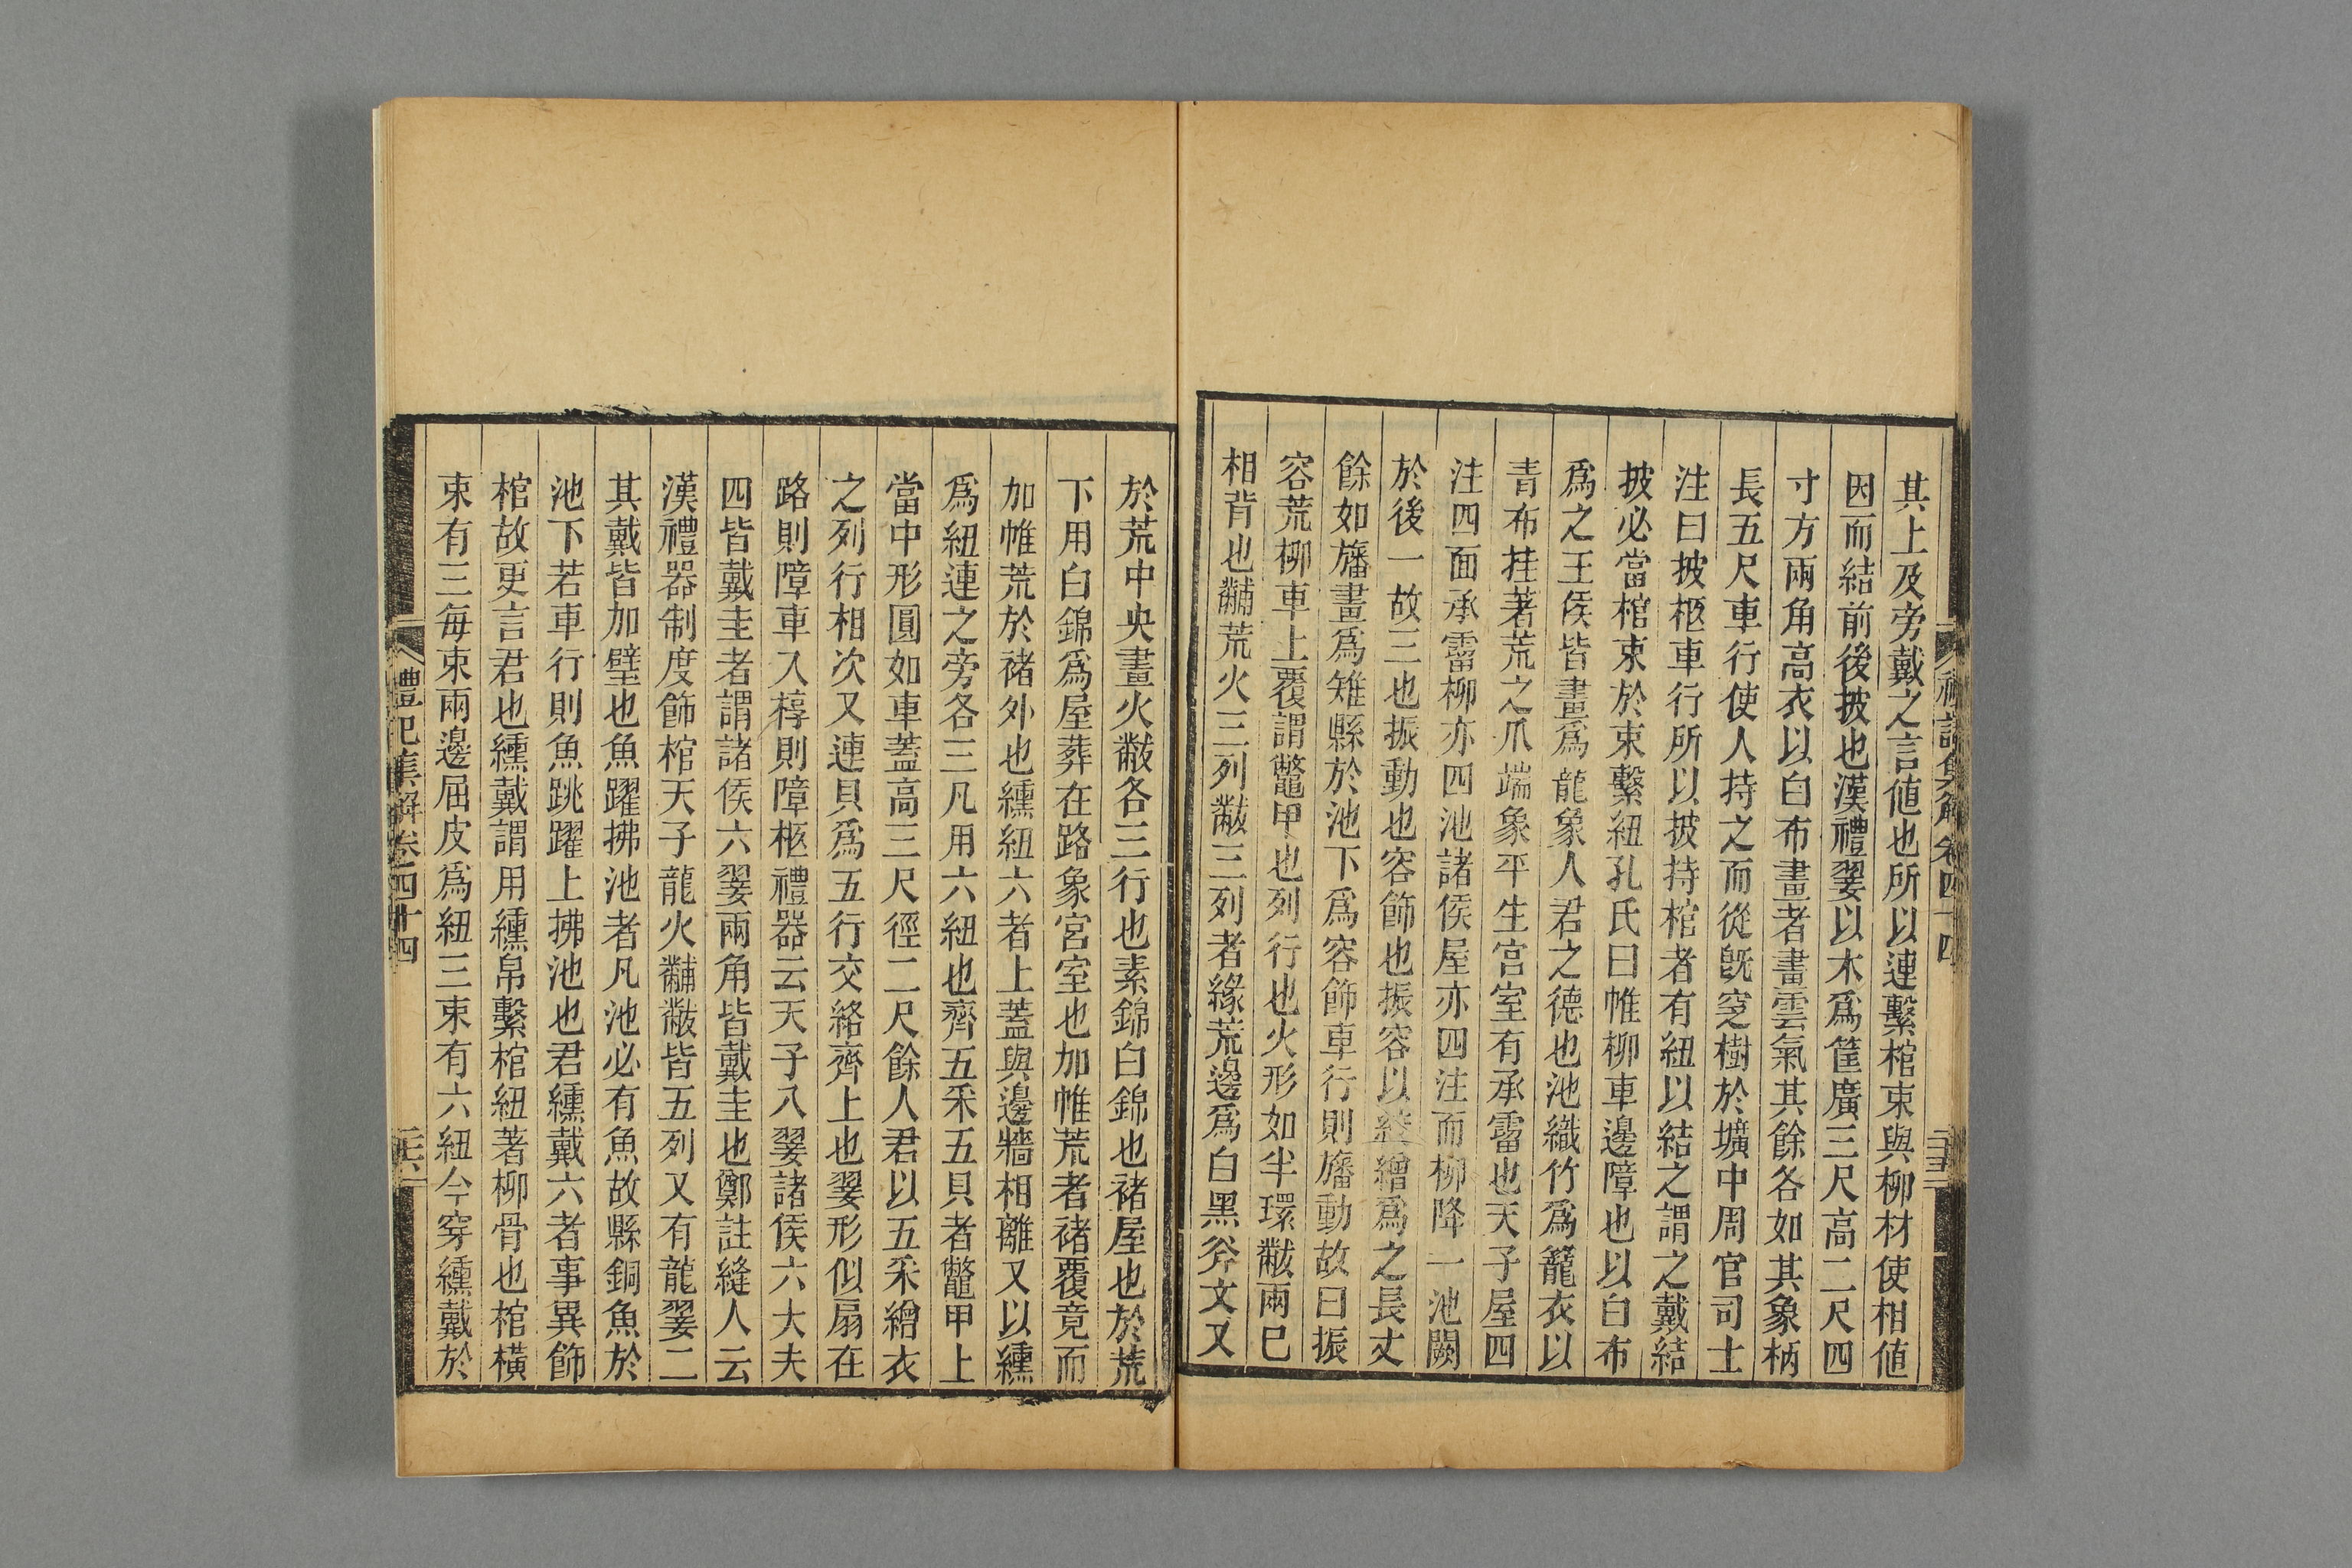 禮記集解卷四十四
其上及旁戴之言值也所以連繫棺束與柳材使相值
因而結前後披也漢禮翣以木爲筐廣三尺高二尺四
寸方兩角高衣以白布畫者畫雲氣其餘各如其象柄
長五尺車行使人持之而從旣窆樹於壙中周官司士
注曰披柩車行所以披持棺者有紐以結之謂之戴結
披必當棺束於束繫紐孔氏曰帷柳車邊障也以白布
爲之王侯皆畫爲龍象人君之德也池織竹爲籠衣以
青布挂著荒之爪端象平生宮室有承霤也天子屋四
注四面承霤柳亦四池諸侯屋亦四注而柳降一池闕
於後一故三也振動也容飾也振容以絞繒爲之長丈
餘如旛畫爲雉縣於池下爲容飾車行則旛動故曰振
容荒柳車上覆謂鼈甲也列行也火形如半環黻兩巳
相背也黼荒火三列黻三列者緣荒邊爲白黑斧文又
於荒中央畫火黻各三行也素錦白錦也褚屋也於荒
下用白錦爲屋葬在路象宮室也加帷荒者褚覆竟而
加帷荒於褚外也纁紐六者上蓋與邊牆相離又以纁
爲紐連之旁各三凡用六紐也齊五采五貝者鼈甲上
當中形圓如車蓋高三尺徑二尺餘人君以五采繒衣
之列行相次又連貝爲五行交絡齊上也翣形似扇在
路則障車入椁則障柩禮器云天子八翣諸侯六大夫
四皆戴圭者謂諸侯六翣兩角皆戴圭也鄭註縫人云
漢禮器制度飾棺天子龍火黼黻皆五列又有龍翣二
其戴皆加璧也魚躍拂池者凡池必有魚故縣銅魚於
池下若車行則魚跳躍上拂池也君纁戴六者事異飾
棺故更言君也纁戴謂用纁帛繫棺紐著柳骨也棺橫
束有三每束兩邊屈皮爲紐三束有六紐今穿纁戴於
禮記集解卷四十四